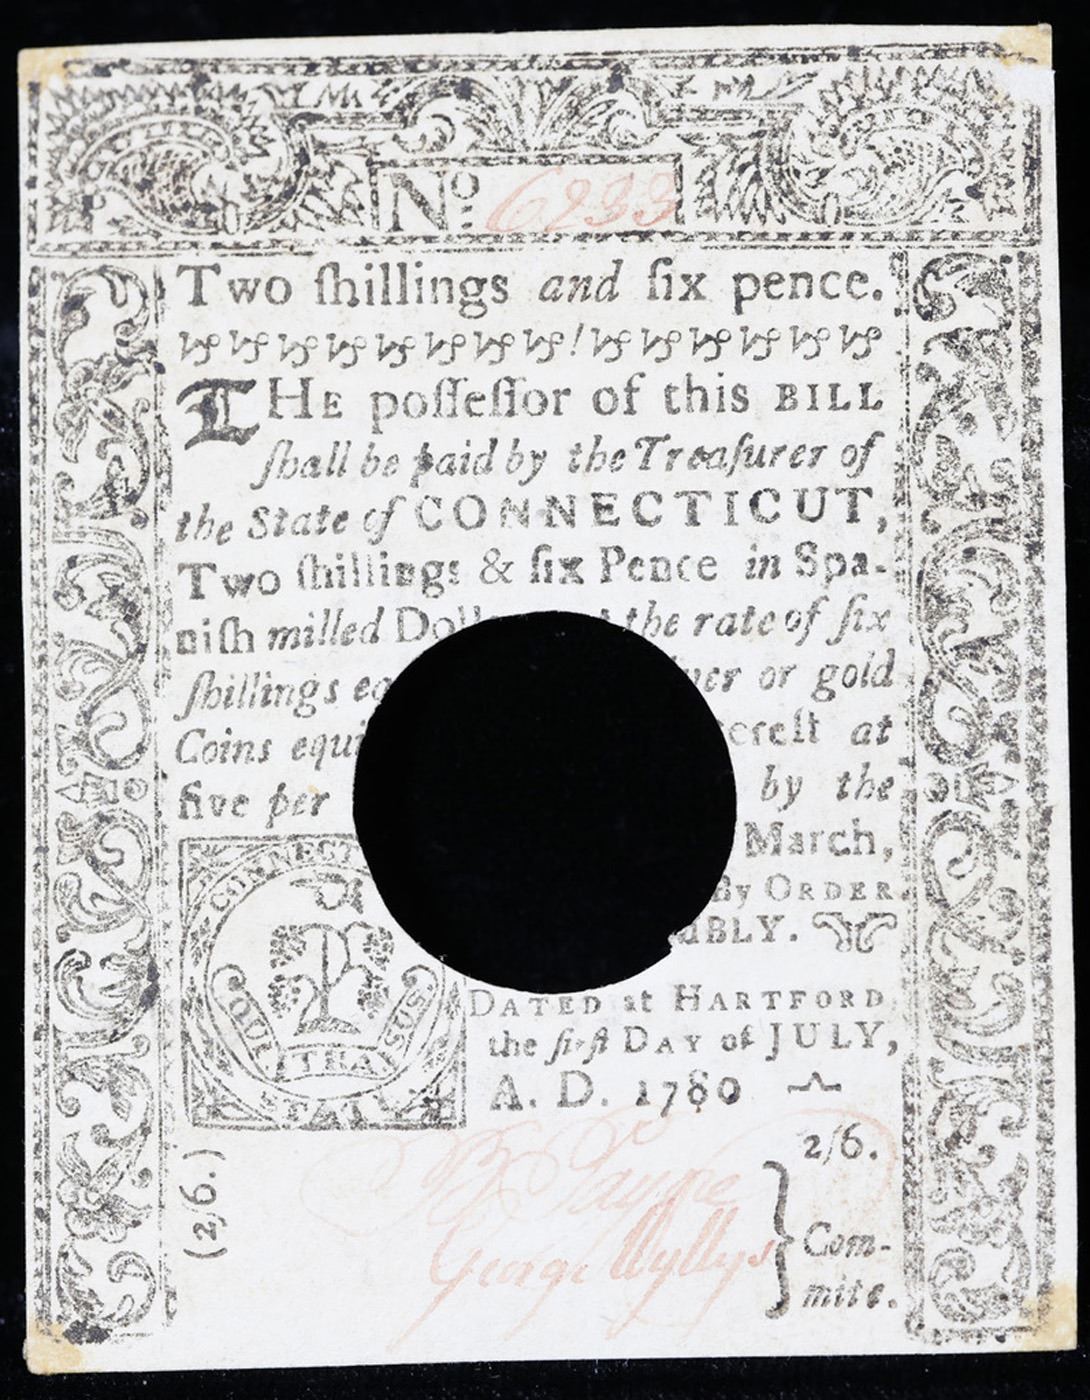 No. 6233
Two ſhillings and ſix pence.
THE poſſeſſor of this BILL
ſhall be paid by the Treaſurer of
the State of CONNECTICUT,
Two ſhillings & ſix Pence in Spa-
niſh milled Doll the rate of ſix
ſhillings or gold
Coins at
five per by the
March,
By ORDER
MBLY.
CONNECT
QUI TRA SUS
DATED at HARTFORD
the firſt DAY of JULY,
A. D. 1780
2/6.
(2/6.)
George Wyllys
Com-
mite.